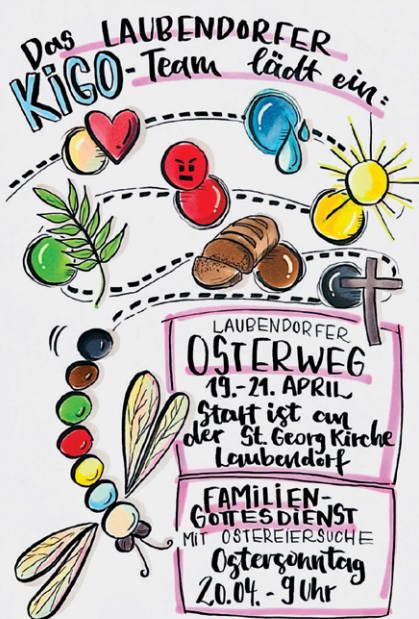 Das LAUBENDORFER
KiGO-Team lädt ein:
LAUBENDORFER
OSTERWEG
19.-21. APRIL
Start ist an
der St. Georg Kirche
Laubendorf
FAMILIEN-
GOTTESDIENST
MIT OSTEREIERSUCHE
Ostersonntag
20.04. - 9 Uhr